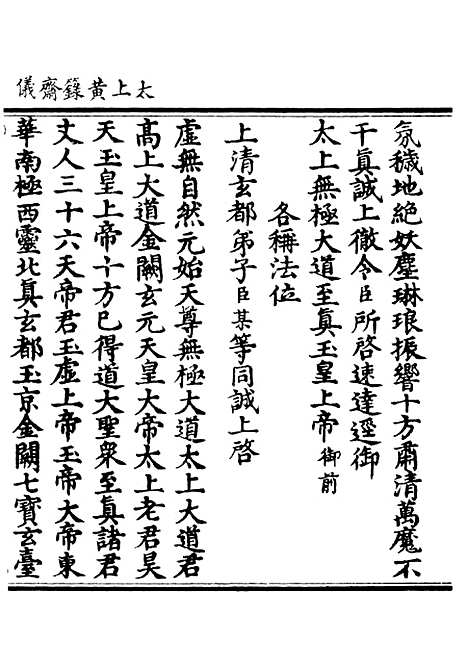 太上黃籙齋儀
氛穢地絕妖塵琳琅振響十方肅清萬魔不
干真誠上徹令臣所啓速達逕御
太上無極大道至真玉皇上帝御前
各稱法位
上清玄都弟子臣某等同誠上啓
虛無自然元始天尊無極大道太上大道君
髙上大道金闕玄元天皇大帝太上老君昊
天玉皇上帝十方已得道大聖衆至真諸君
丈人三十六天帝君玉虛上帝玉帝大帝東
華南極西靈北真玄都玉京金闕七寶玄臺